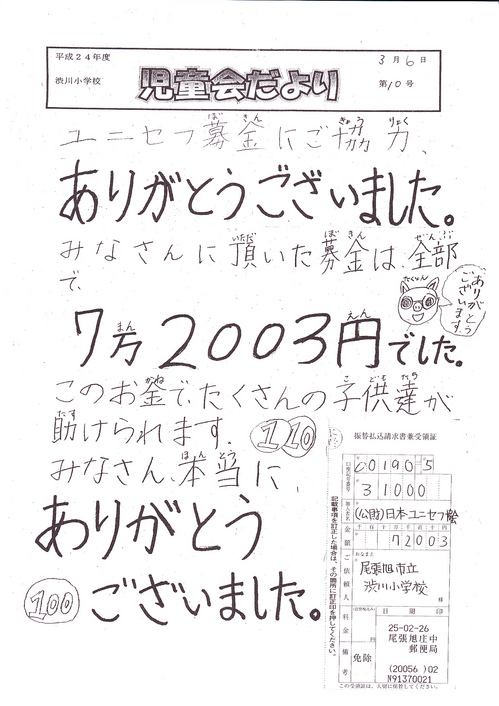 平成24年度
渋川小学校
児童会だより
3月6日
第10号
ユニセフ募金にご協力、
ありがとうございました。
みなさんに頂いた募金は、全部
で、
たくやん
ありがとうございます
7万2003円でした。
このお釜で、たくさんの子供達が
助けられます。
1 10
みなさん、本当に、
ありがとう
100 ございました。
振替払込請求書兼受領証
00190 5
31000
(公財)日本ユニセフ協会
金額 72003
ご依頼人
おなまえ
尾張旭市立
渋川小学校
様
料金
日附印
備考
免除
25-02-26
尾張旭庄中
郵便局
(20056 )02
N91370021
記載事項を訂正した場合は、その箇所に訂正印を押してください。
この受領証は、大切に保管してください。